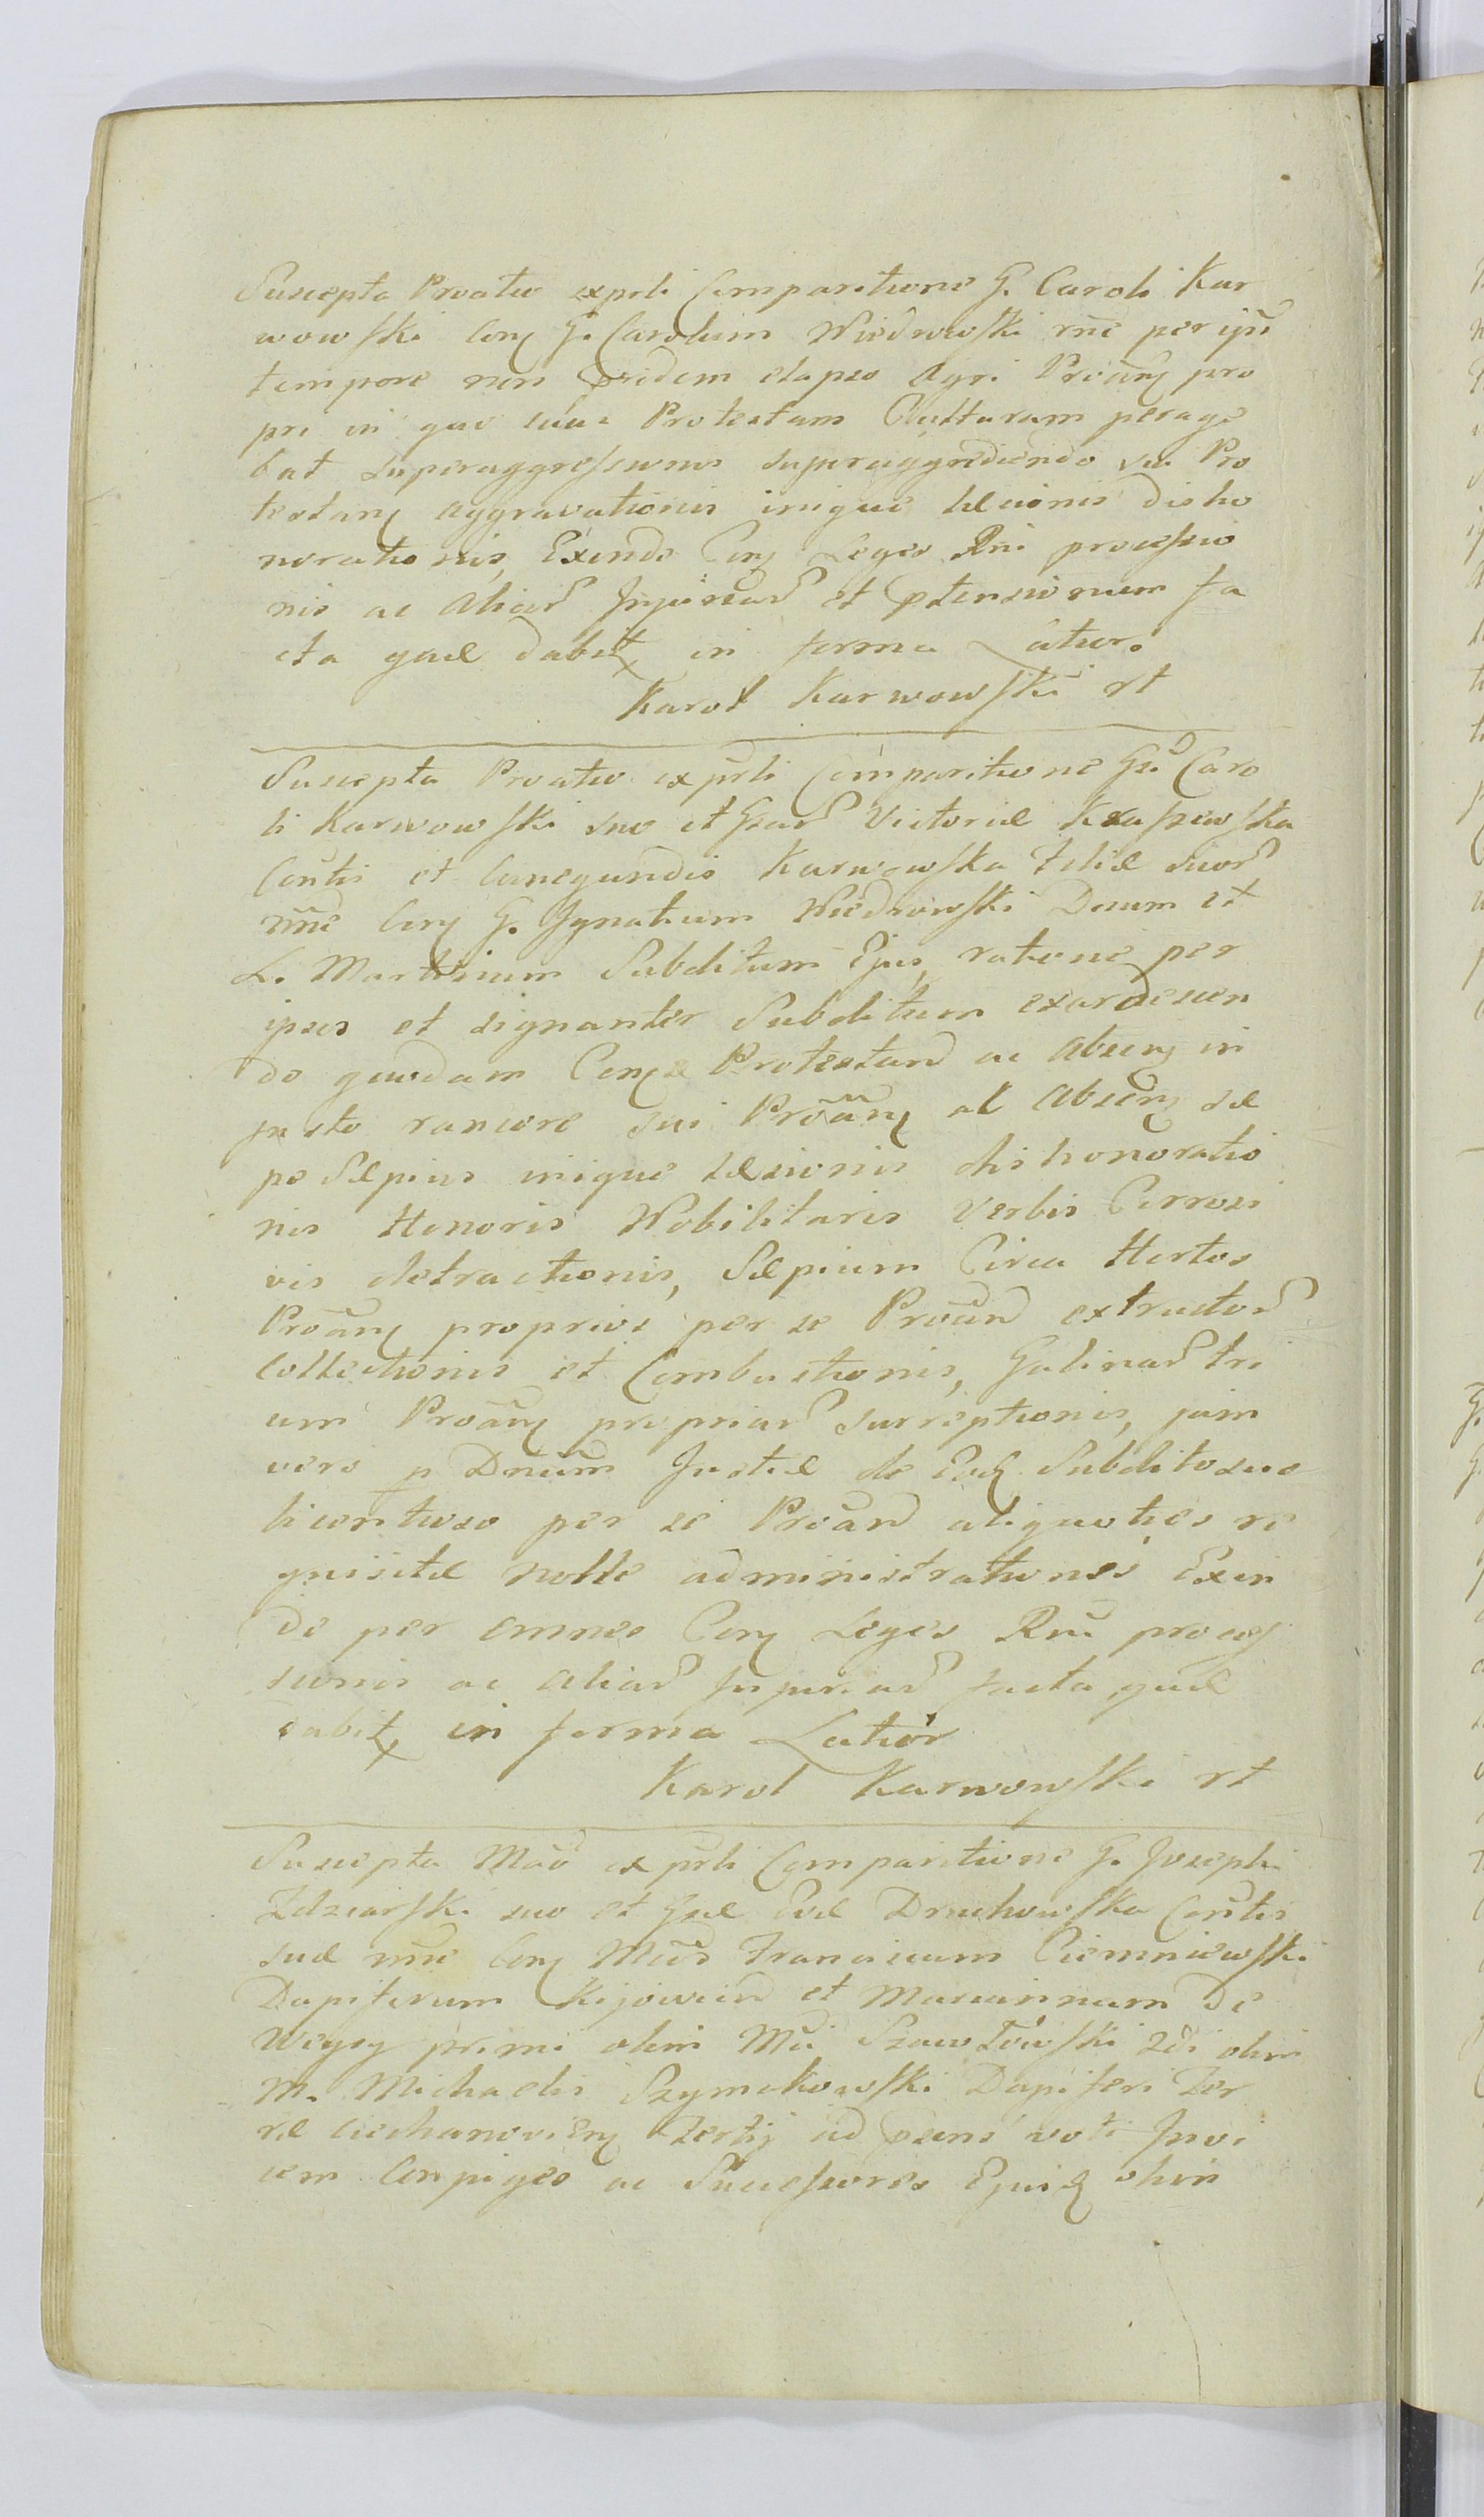 Suscepta Proatio expsli Comparitione G. Caroli Kar
wowski Con G. Carolum Wiedrowski rne per ipsũ
tempore non pridem elapso agri Proãn pro
pri in quo suus Protestans Culturam perage
bat superaggressionis superaggrediendo se Pro
testan aggravationis inique læsionis disho
norationis, Exinde Con Leges Rni processio
nis ac aliar Injuriar et ptensionum fa
cta quæ dabit in forma Latior.
Karol Karwowski rt
Suscepta Proatio expsli Comparitione Gsi Caro
li Karwowski suo et Gsar Victoriæ Kraszewska
Contis et Cunegundis Karwowska Filiæ suor
rne Con G. Ignatium Wiedrowski Dnum et
L. Martinum Subditum Ejus, ratione per
ipsos et signanter Subditum exardescen
do quodam Con se Protestand ac absen in
justo rancore sui Proãn al absen sæ
pe sæpius inique læsionis dishonoratio
nis Honoris Nobilitaris verbis Corrosi
vis detractionis, Sæpium Circa Hortos
Proãn proprios per se Proãnd extructor
collectionis et Combustionis, Galinar tri
um Proãn propriar surreptionis, jam
vero p Dnum Justiæ de Eod Subdito suo
licentioso per se Proãnd aliquoties re
quisitæ nolle administrationis Exin
de per omnes Con Leges Rni proces
sionis ac aliar Injuriar facta, quæ
dabit in forma Latior
Karol Karwowski rt
Suscepta Mão expsli Comparitione G. Josephi
Zdziarski suo et Gsæ Evæ Druchowska Contis
suæ rne Con Mcos Franciscum Ciemniewski
Dapiferum Kijovien et Mariannam de
Wegry primi olim Mci Szawłowski 2di olim
M. Michaelis Szymakowski Dapiferi Ter
ræ Ciechanovien tertij ad psens voti Invi
cem Conjuges ac Successores Ejusd olim